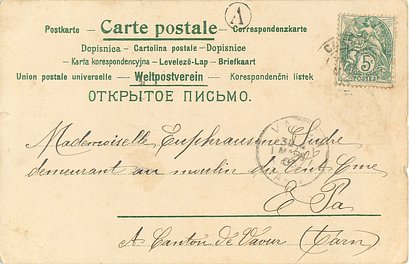 Postkarte – Carte postale – Correspondenzkarte
A
Dopisnica – Cartolina postale – Dopisnice
Karta korespondencyjna – Levelező-Lap – Briefkaart
Union postale universelle – Weltpostverein – Korespondenční listek
ОТКРЫТОЕ ПИСЬМО.
5
Mademoiselle Euphrausine
demeurant au moulin du
E Pa
A Canton de Vaveur (Tarn)